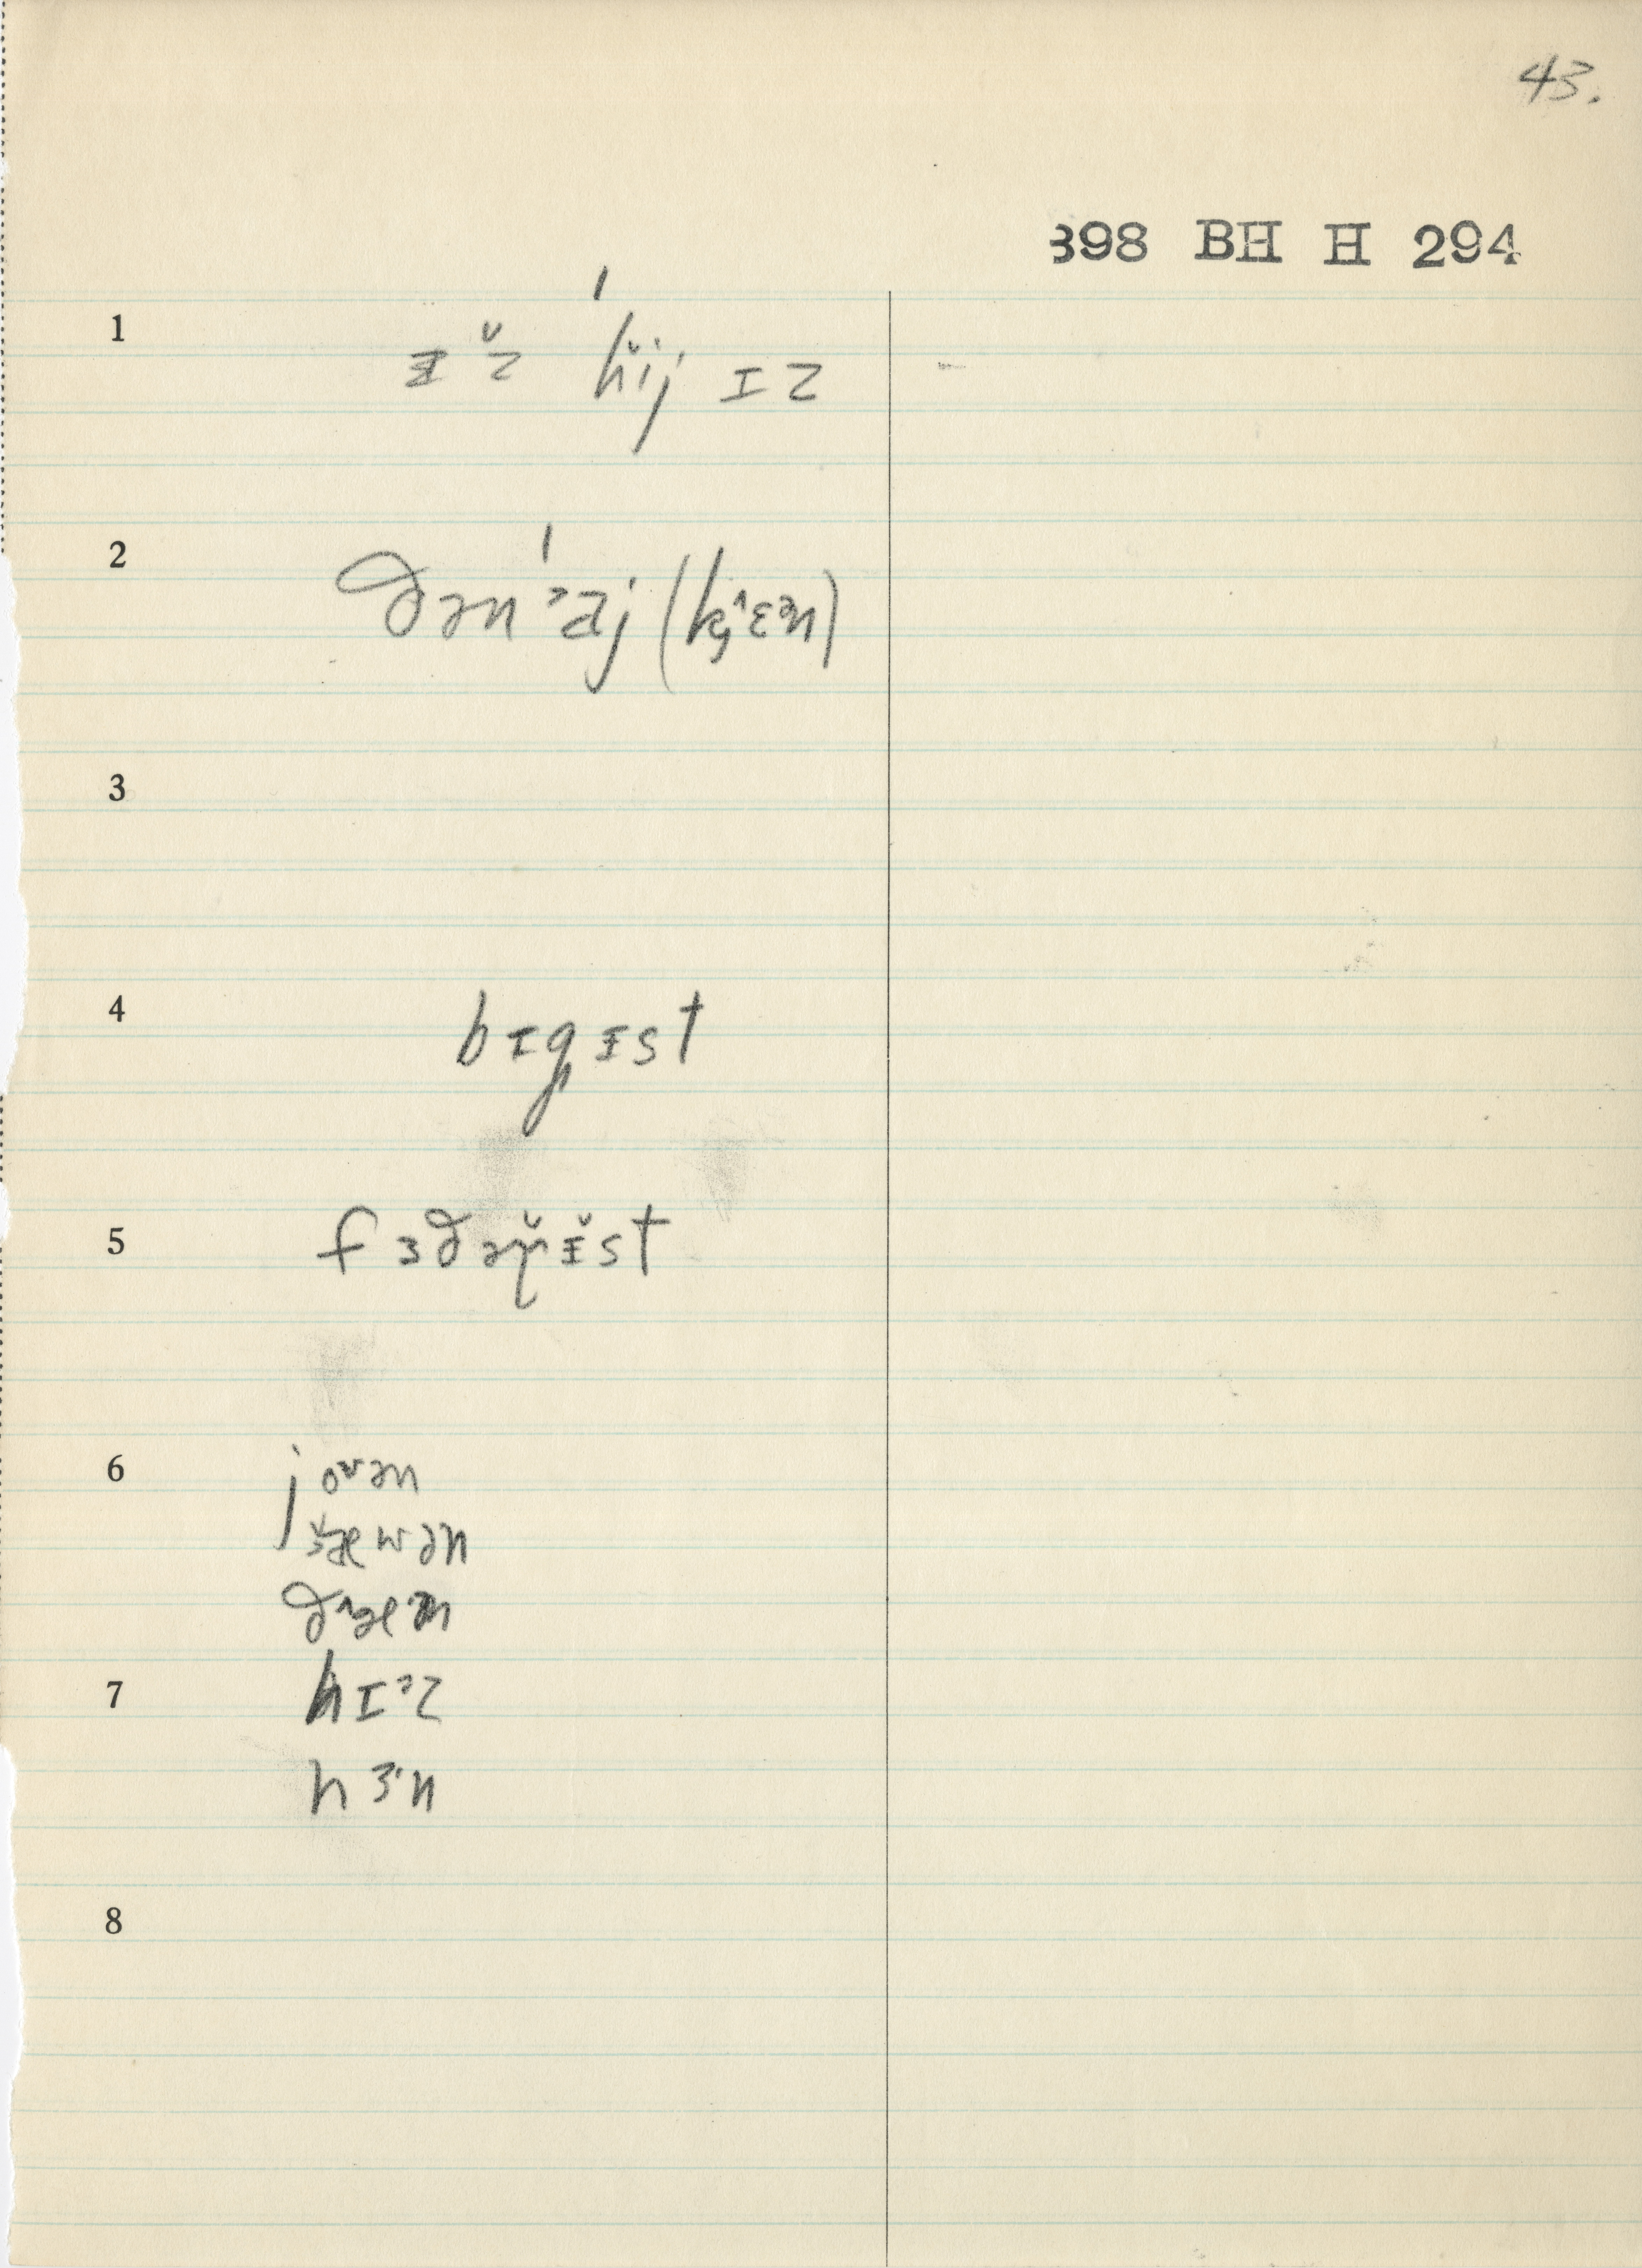 43.
398 BH H 294
1 ᵻ̵ ̌z hij ɪz
2 ðən ˀaj (kjˆɛən)
3
4 bɪgᵻst
5 fɜðəɽᵻst
6 joʷən
jɜæwən
ðˆæᵊn
7 hɪˀz
hɜn
8